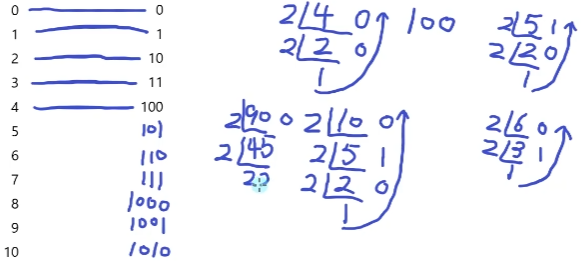 0 0
1 1
2 10
3 11
4 100
5 101
6 110
7 111
8 1000
9 1001
10 1010
2 4 0
2 2 0
1
100
2 5 1
2 2 0
1
2 90 0
2 45
22
2 10 0
2 5 1
2 2 0
1
2 6 0
2 3 1
1